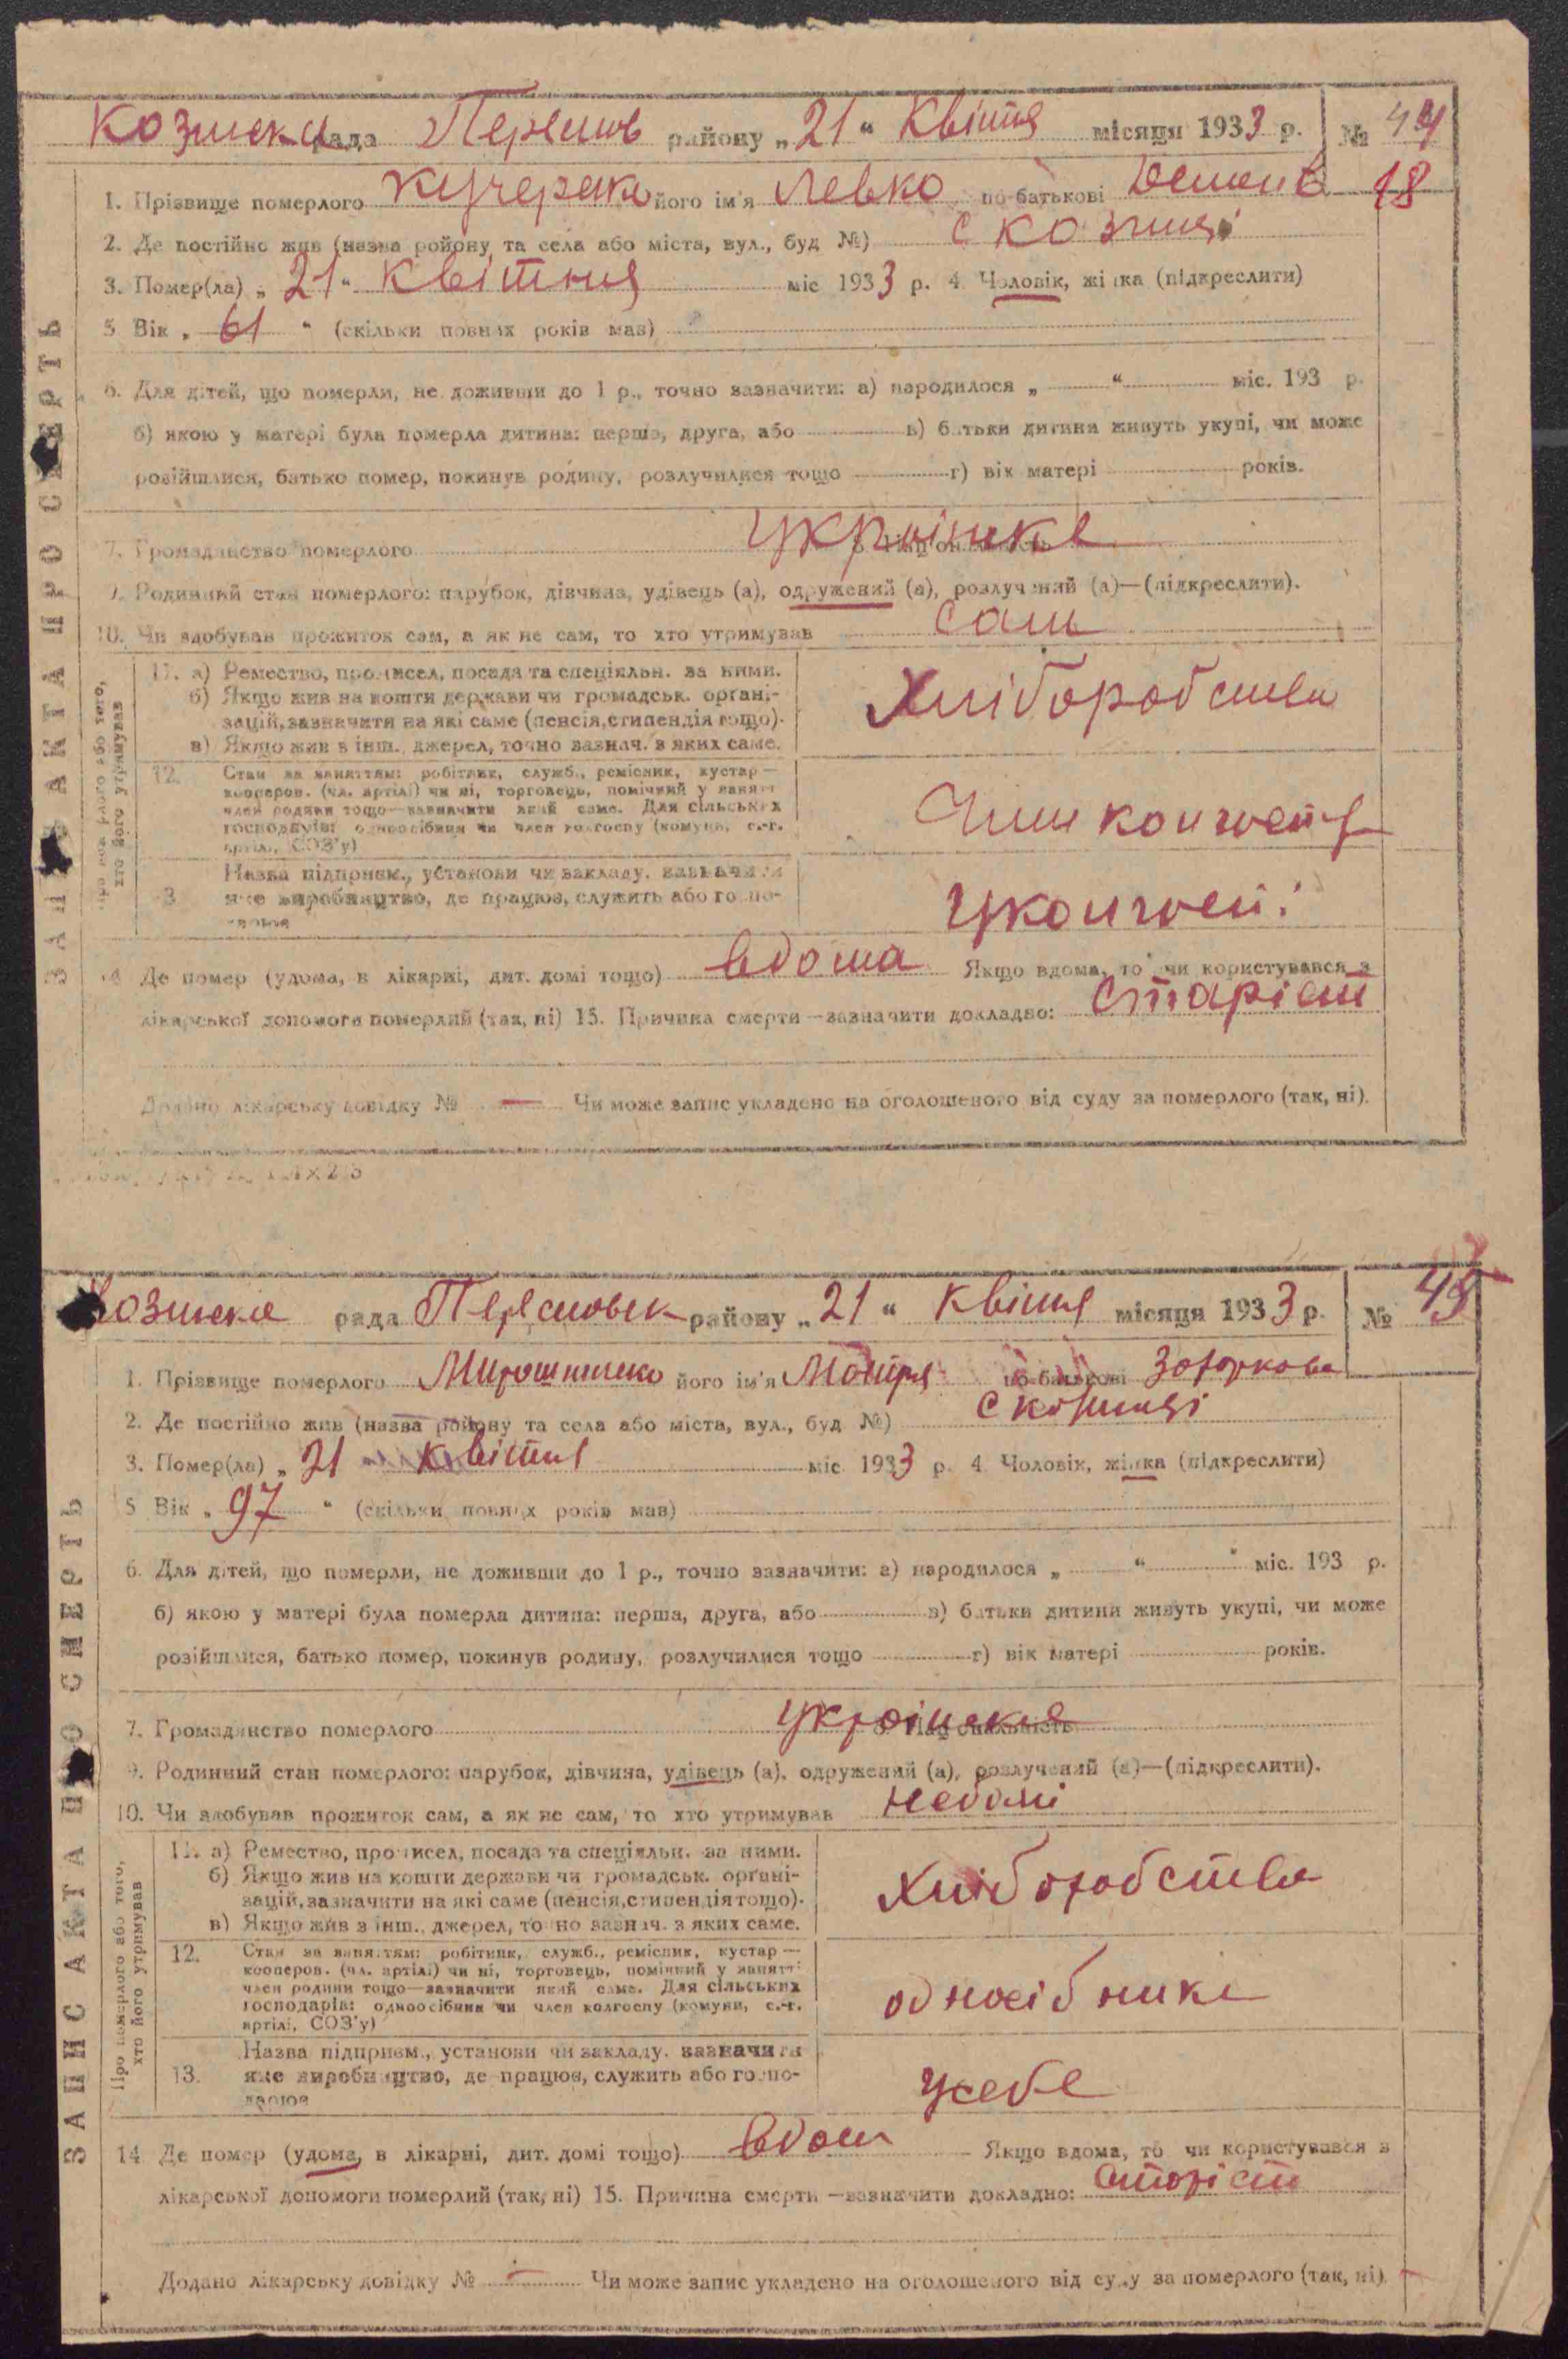 Козинска рада Переяслов району „ 21 “ Квітня місяця 1933 р. № 44
18
1. Прізвище померлого Кучеренко його ім'я Левко по-батькові Семенов
2. Де постійно жив (назва ройону та села або міста, вул., буд №) с Козинці
3. Помер(ла) „ 21 “ Квітня міс 1933 р. 4 Чоловік, жінка (підкреслити)
5 Вік „ 61 “ (скільки повних років мав)
6. Для дітей, що померли, не доживши до 1 р., точно зазначити: а) народилося „ “ міс. 193 р.
б) якою у матері була померла дитина: перша, друга, або в) батьки дитини живуть укупі, чи може
розійшлися, батько помер, покинув родину, розлучилися тощо г) вік матері років.
7. Громадянство померлого українка
9. Родинний стан померлого: парубок, дівчина, удівець (а), одружений (а), розлучений (а)—(підкреслити).
10. Чи здобував прожиток сам, а як не сам, то хто утримував сам
Про померлого або того, хто його утримував
11. а) Ремество, промисел, посада та спеціяльн. за ними.
б) Якщо жив на кошти держави чи громадськ. органі-
зацій, зазначити на які саме (пенсія, стипендія тощо).
в) Якщо жив з інш. джерел, точно зазнач. з яких саме.
Хліборобства
12. Стан за заняттям: робітник, служб., ремісник, кустар —
кооперов. (чл. артілі) чи ні, торговець, помічний у занятт
член родини тощо—зазначити який саме. Для сільських
господарів: одноосібник чи член колгоспу (комуни, с.-г.
артілі, СОЗ'у)
Член
13 Назва підприєм., установи чи закладу. зазначити
яке виробництво, де працює, служить або госпо-
дарює
14 Де помер (удома, в лікарні, дит. домі тощо) вдома Якщо вдома, то чи користувався з
лікарської допомоги померлий (так, ні) 15. Причина смерти—зазначити докладно: старіст
Додано лікарську довідку № — Чи може запис укладено на оголошеного від суду за померлого (так, ні).
ЗАПИС АКТА ПРО СМЕРТЬ
Козинска рада Переяловск району „ 21 “ Квітня місяця 1933 р. № 45
1. Прізвище померлого Мирошниченко його ім'я Мотря по-батькові
2. Де постійно жив (назва району та села або міста, вул., буд №) с Козинці
3. Помер(ла) „ 21 Квітня міс 1933 р. 4 Чоловік, жінка (підкреслити)
5 Вік „ 97 “ (скільки повних років мав)
6. Для дітей, що померли, не доживши до 1 р., точно зазначити: а) народилося „ “ міс. 193 р.
б) якою у матері була померла дитина: перша, друга, або в) батьки дитини живуть укупі, чи може
розійшлися, батько помер, покинув родину, розлучилися тощо г) вік матері років.
7. Громадянство померлого українка 8. Національність
9. Родинний стан померлого: парубок, дівчина, удівець (а), одружений (а), розлучений (а)—(підкреслити).
10. Чи здобував прожиток сам, а як не сам, то хто утримував
Про померлого або того, хто його утримував
11. а) Ремество, промисел, посада та спеціяльн. за ними.
б) Якщо жив на кошти держави чи громадськ. органі-
зацій, зазначити на які саме (пенсія, стипендія тощо).
в) Якщо жив з інш. джерел, точно зазнач. з яких саме.
Хліборобства
12. Стан за заняттям: робітник, служб., ремісник, кустар —
кооперов. (чл. артілі) чи ні, торговець, помічний у занятт
член родини тощо—зазначити який саме. Для сільських
господарів: одноосібник чи член колгоспу (комуни, с.-г.
артілі, СОЗ'у)
односібника
13. Назва підприєм., установи чи закладу. зазначити
яке виробництво, де працює, служить або госпо-
дарює
усебе
14 Де помер (удома, в лікарні, дит. домі тощо) вдом Якщо вдома, то чи користувався з
лікарської допомоги померлий (так, ні) 15. Причина смерти —зазначити докладно: старіст
Додано лікарську довідку № — Чи може запис укладено на оголошеного від суду за померлого (так, ні).
ЗАПИС АКТА ПРО СМЕРТЬ